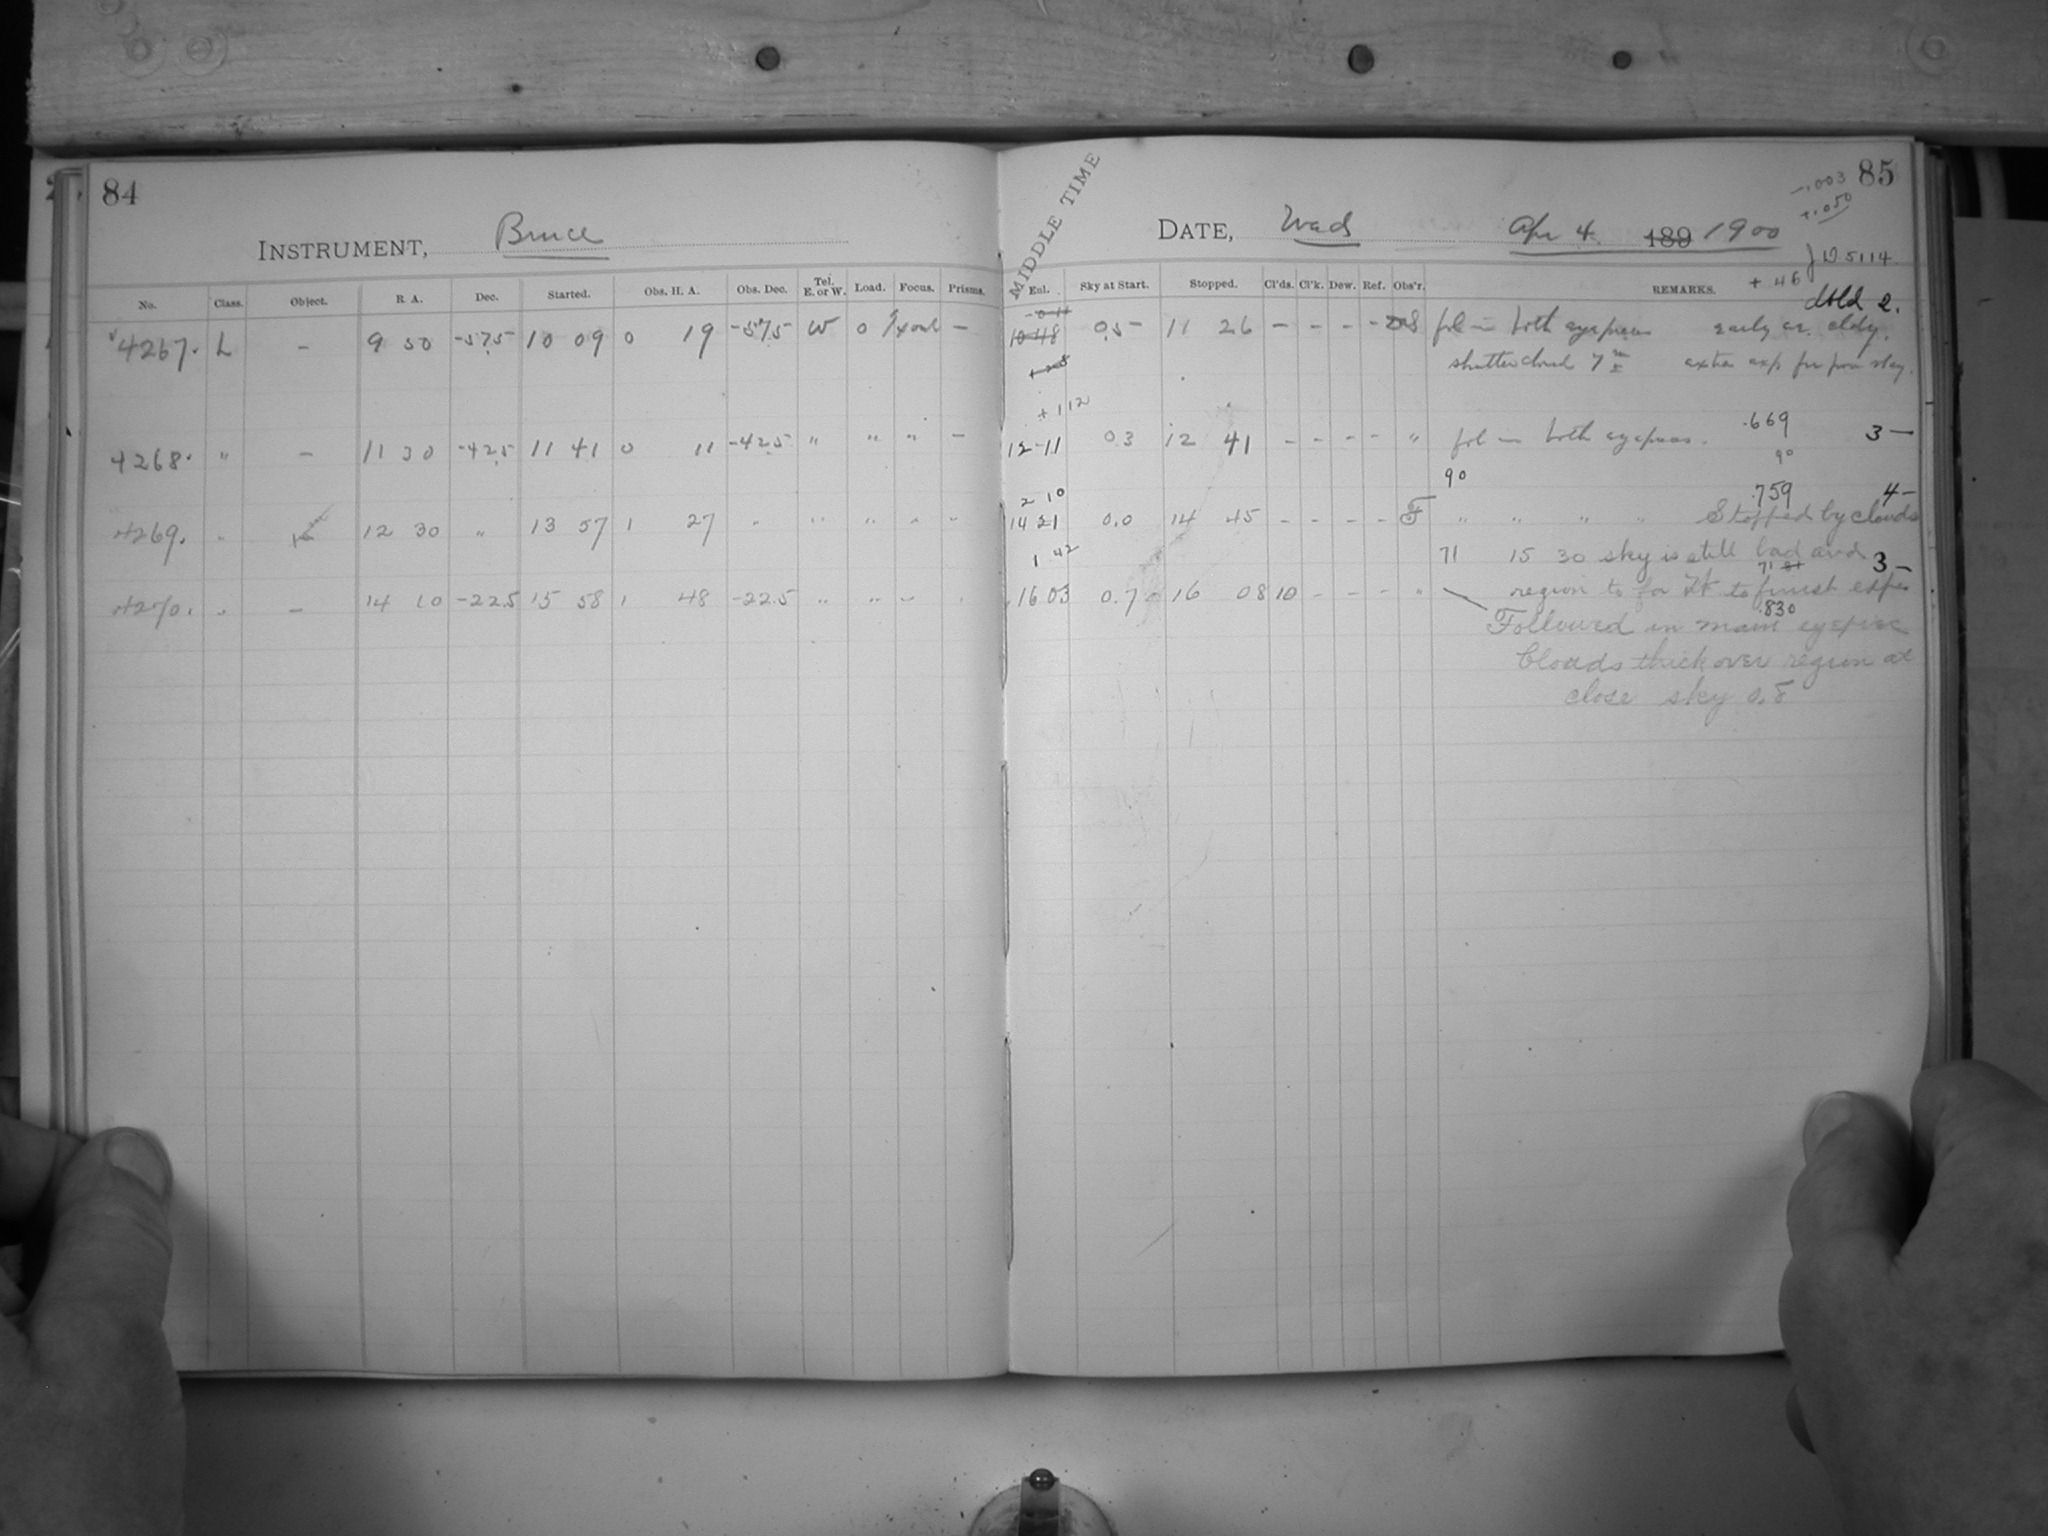 84
INSTRUMENT, Bruce
No. Class. Object. R A. Dec. Started. Obs. H. A. Obs. Dec. Tel. E. or W. Load. Focus. Prisms.
4267. L - 9 50 -57.5 10 09 0 19 -57.5 W 0 -
4268. " - 11 30 -42.5 11 41 0 11 -42.5 " " " -
4269. " 12 30 " 13 57 1 27 " " " " "
4270. " - 14 10 -22.5 15 58 1 48 -22.5 " " "
85
-.003
+.050
MIDDLE TIME
DATE, Wed Apr 4. 189 1900
J D 5114
+ 46
Enl. Sky at Start. Stopped. Cl'ds. Cl'k. Dew. Ref. Obs'r. REMARKS.
2.
10 48 0.5 11 26 - - - - fol in both eyepieces early ev. cldy.
shutter closed 7 m extra exp. for poor sky.
+ 1 12
.669
12-11 0.3 12 41 - - - - " fol in both eyepieces. 3-
90
90
2 10
.759 4-
14 21 0.0 14 45 - - - - F " " " " Stopped by clouds
1 42
71 15 30 sky is still bad and 3-
71
16 03 0.7 16 08 10 - - - " region to far W to finish expo
.830
Followed in main eyepiece
Clouds thick over region at
close sky 0.8